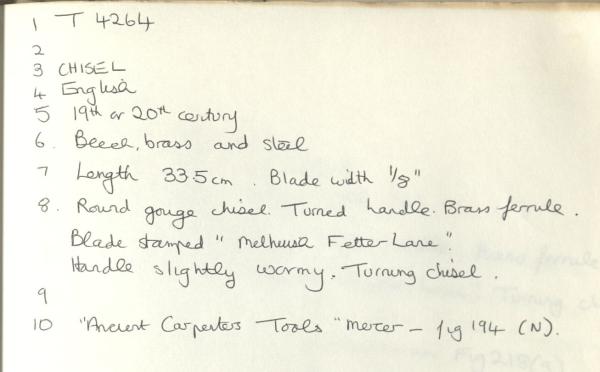 1 T 4264
2
3 CHISEL
4 English
5 19th or 20th century
6. Beech, brass and steel
7 Length 33.5cm. Blade width 1/8"
8. Round gouge chisel. Turned handle. Brass ferrule.
Blade stamped "Melhuish Fetter Lane".
Handle slightly wormy. Turning chisel.
9
10 "Ancient Carpenters Tools" Mercer - fig 194 (N).
ferrule
Turning ch
Fig 218(g)